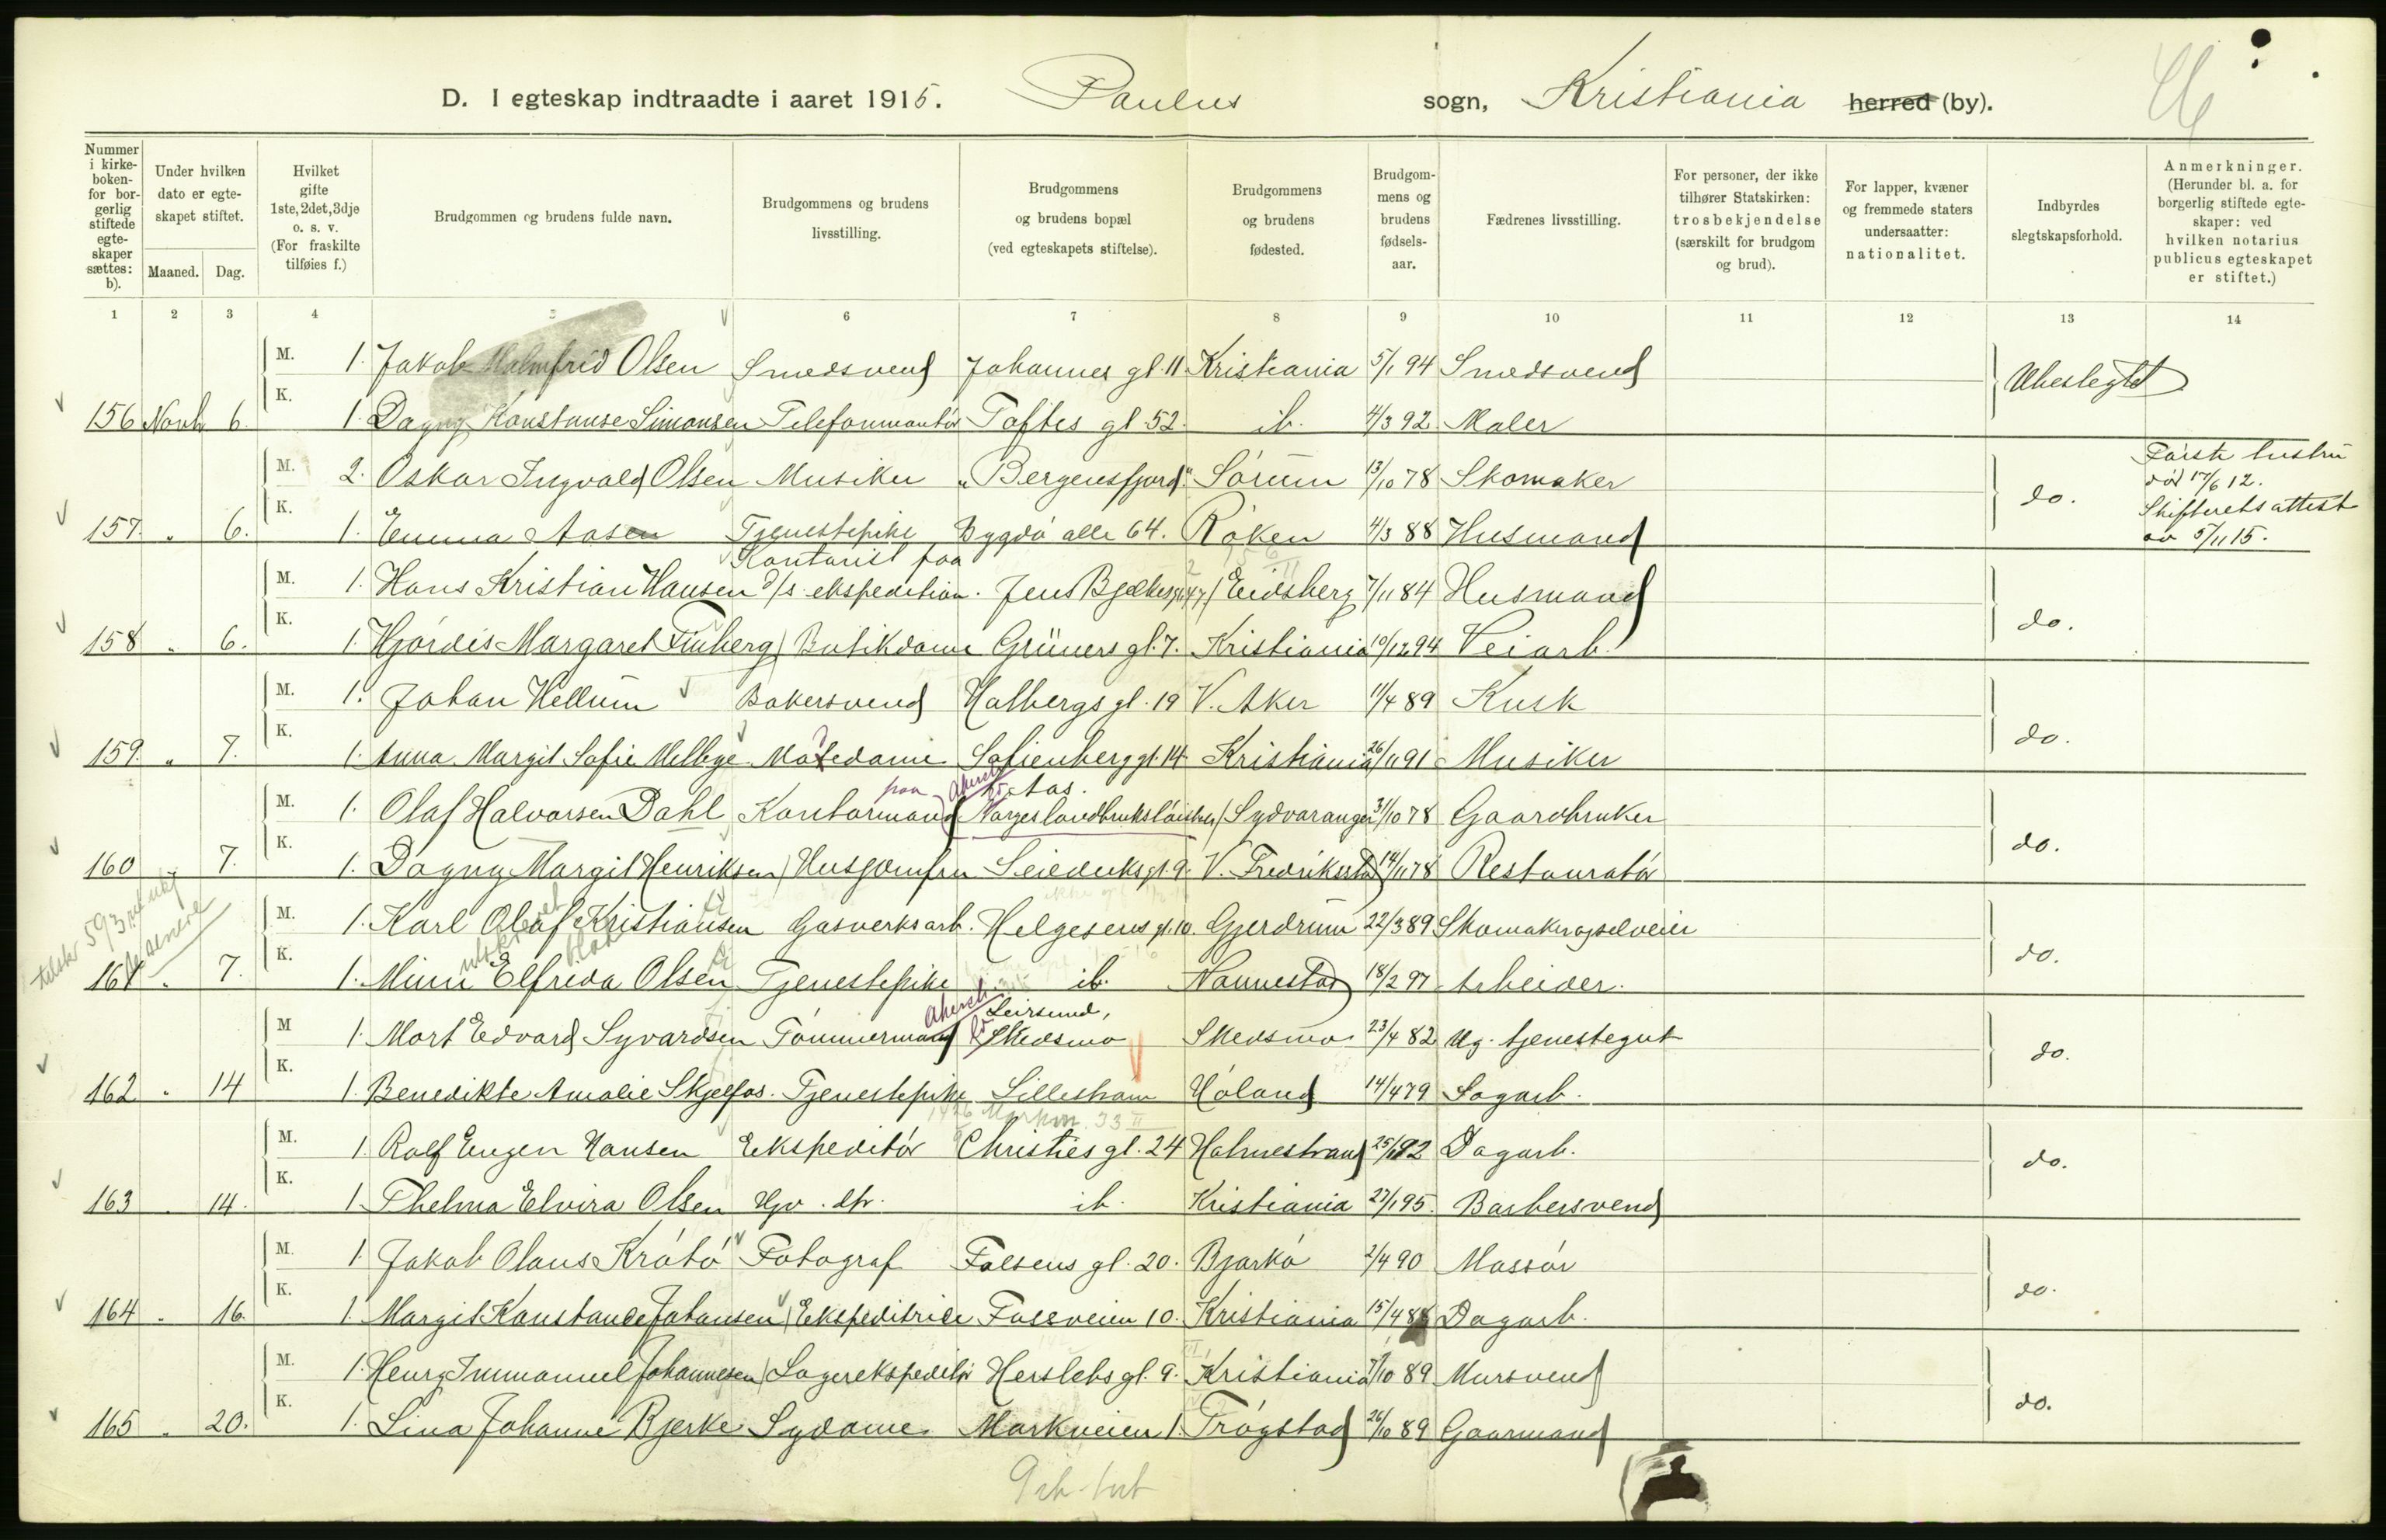 D. I egteskap indtraadte i aaret 1915. Paulus sogn, Kristiania herred (by).
Nummer i kirkeboken- for borgerlig stiftede egteskaper sættes: b).
Under hvilken dato er egteskapet stiftet.
Maaned. Dag.
Hvilket gifte 1ste, 2det, 3dje o. s. v. (For fraskilte tilføies f.)
Brudgommen og brudens fulde navn.
Brudgommens og brudens livsstilling.
Brudgommens og brudens bopæl (ved egteskapets stiftelse).
Brudgommens og brudens fødested.
Brudgommens og brudens fødselsaar.
Fædrenes livsstilling.
For personer, der ikke tilhører Statskirken: trosbekjendelse (særskilt for brudgom og brud).
For lapper, kvæner og fremmede staters undersaatter: nationalitet.
Indbyrdes slegtskapsforhold.
Anmerkninger. (Herunder bl. a. for borgerlig stiftede egteskaper: ved hvilken notarius publicus egteskapet er stiftet.)
1 2 3 4 5 6 7 8 9 10 11 12 13 14
M. 1. Jakob Malmfrid Olsen Smedsvend Johannes gl. 11 Kristiania 5/1 94 Smedsvend Ubeslegtet
156 Novb 6. K. 1. Dagny Konstanse Simonsen Telefonmontør Toftes gl 52. ib. 4/3 92 Maler
M. 2. Oskar Ingvald Olsen Musiker "Bergensfjord" Sørum 13/10 78 Skomaker do. Første hustru død 17/6 12. Skifterets attest av 5/11 15.
157. " 6. K. 1. Emma Aasen Tjenestepike Bygdø alle 64. Røken 4/3 88 Husmand
M. 1. Hans Kristian Hansen Kontorist paa d/s ekspedition. Jens Bjelkesgt 47 Eidsberg 7/11 84 Husmand do.
158 " 6. K. 1. Hjørdis Margaret Finberg Butikdame Grüners gl. 7. Kristiania 10/12 94 Veiarb.
M. 1. Johan Hellum Bakersvend Holbergs gl. 19 V. Aker 11/4 89 Kusk do.
159. " 7. K. 1. Anna Margit Sofie Melbye Motedame Sofienberg gt. 14. Kristiania 26/11 91 Musiker
M. 1. Olaf Halvorsen Dahl Kontormand paa Norges landbrukshøiskole Aas. Sydvaranger 31/10 78 Gaardbruker do.
160 " 7. K. 1. Dagny Margit Henriksen Husjomfru Seilduksgt. 9. V. Fredrikstad 14/11 78 Restauratør
M. 1. Karl Olaf Kristiansen Gasverksarb. Helgesens gt. 10. Gjerdrum 22/3 89 Skomaker og selveier do.
161 " 7. K. 1. Minni Elfrida Olsen Tjenestepike ib. Nannestad 18/2 97 Arbeider.
M 1. Mart Edvard Syvardsen Tømmermand Leirsund, Skedsmo Skedsmo 23/4 82 Ug. tjenestegut do.
162 " 14 K. 1. Benedikte Amalie Skjelfos. Tjenestepike Lillestrøm Høland 14/4 79 Sagarb.
M. 1. Rolf Eugen Hansen Ekspeditør Christies gl. 24 Holmestrand 25/1 92 Dagarb. do.
163 " 14. K. 1. Thelma Elvira Olsen Hjv. dtr. ib. Kristiania 27/1 95. Barbersvend
M. 1. Jakob Olaus Krøtø Fotograf Falsens gl. 20. Bjarkø 2/4 90 Massør do.
164 " 16. K. 1. Margit Konstance Johansen Ekspeditrice Fossveien 10. Kristiania 15/4 88 Dagarb.
M. 1. Henry Immanuel Johannesen Lagerekspeditør Herslebs gl. 9. Kristiania 7/10 89 Mursvend do.
165 " 20. K. 1. Lina Johanne Bjerke Sydame. Markveien 1. Trøgstad 26/10 89 Gaarmand